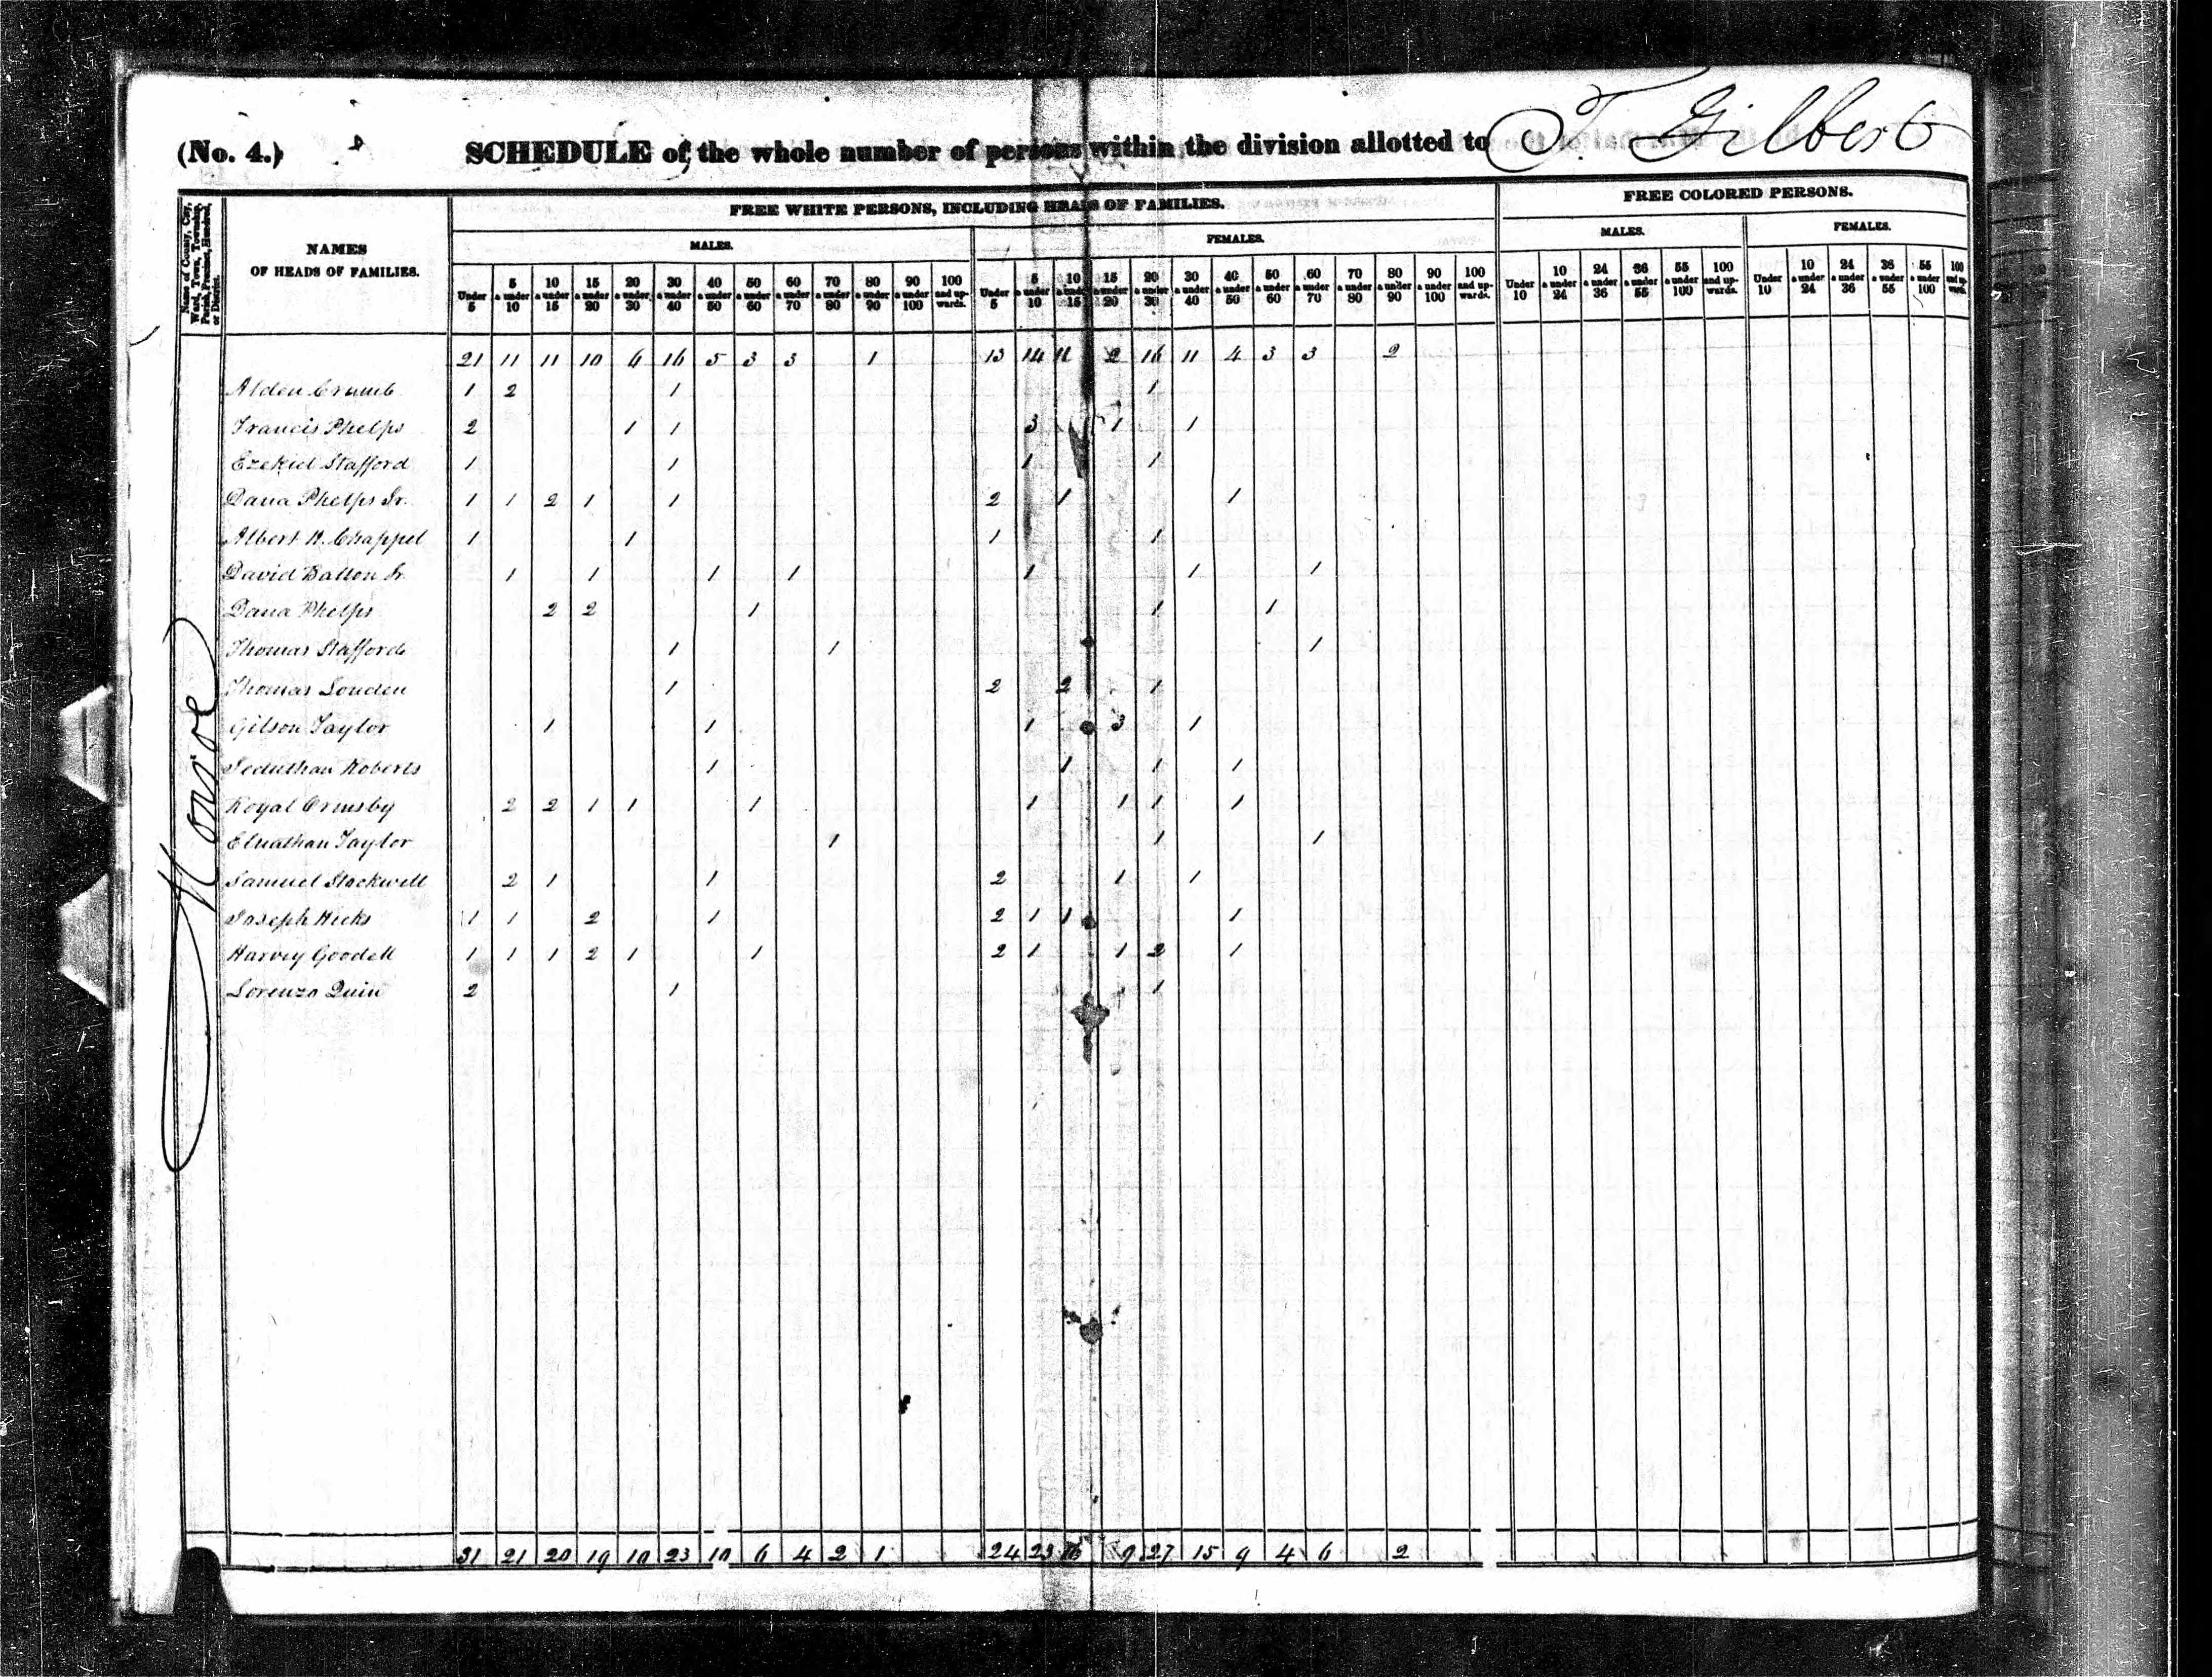 (No. 4.) SCHEDULE of the whole number of persons within the division allotted to T. Gilbert
Name of County, City, Ward, Town, Township, Parish, Precinct, Hundred, or District.
NAMES OF HEADS OF FAMILIES.
FREE WHITE PERSONS, INCLUDING HEADS OF FAMILIES.
FREE COLORED PERSONS.
MALES. FEMALES. MALES. FEMALES.
Under 5 | 5 & under 10 | 10 & under 15 | 15 & under 20 | 20 & under 30 | 30 & under 40 | 40 & under 50 | 50 & under 60 | 60 & under 70 | 70 & under 80 | 80 & under 90 | 90 & under 100 | 100 and upwards. | Under 5 | 5 & under 10 | 10 & under 15 | 15 & under 20 | 20 & under 30 | 30 & under 40 | 40 & under 50 | 50 & under 60 | 60 & under 70 | 70 & under 80 | 80 & under 90 | 90 & under 100 | 100 and upwards. | Under 10 | 10 & under 24 | 24 & under 36 | 36 & under 55 | 55 & under 100 | 100 and upwards. | Under 10 | 10 & under 24 | 24 & under 36 | 36 & under 55 | 55 & under 100 | 100 and upwards.
Monroe
21 11 11 10 6 16 5 3 3 1 13 14 11 2 16 11 4 3 3 2
Alden Crumb 1 2 1 1
Francis Phelps 2 1 1 3 1 1
Ezekiel Stafford 1 1 1 1
Dana Phelps Jr. 1 1 2 1 1 2 1 1
Albert H. Chappel 1 1 1 1
David Ballou Jr. 1 1 1 1 1 1 1
Dana Phelps 2 2 1 1 1
Thomas Stafford 1 1 1
Thomas Louden 1 2 2 1
Gilson Taylor 1 1 1 3 1
Jeduthan Roberts 1 1 1 1
Royal Ormsby 2 2 1 1 1 1 1 1 1
Elnathan Taylor 1 1 1
Samuel Stockwell 2 1 1 2 1 1
Joseph Hicks 1 1 2 1 2 1 1 1
Harvey Goodell 1 1 1 2 1 1 2 1 1 2 1
Lorenzo Quin 2 1 1
31 21 20 19 10 23 10 6 4 2 1 24 23 16 9 27 15 9 4 6 2